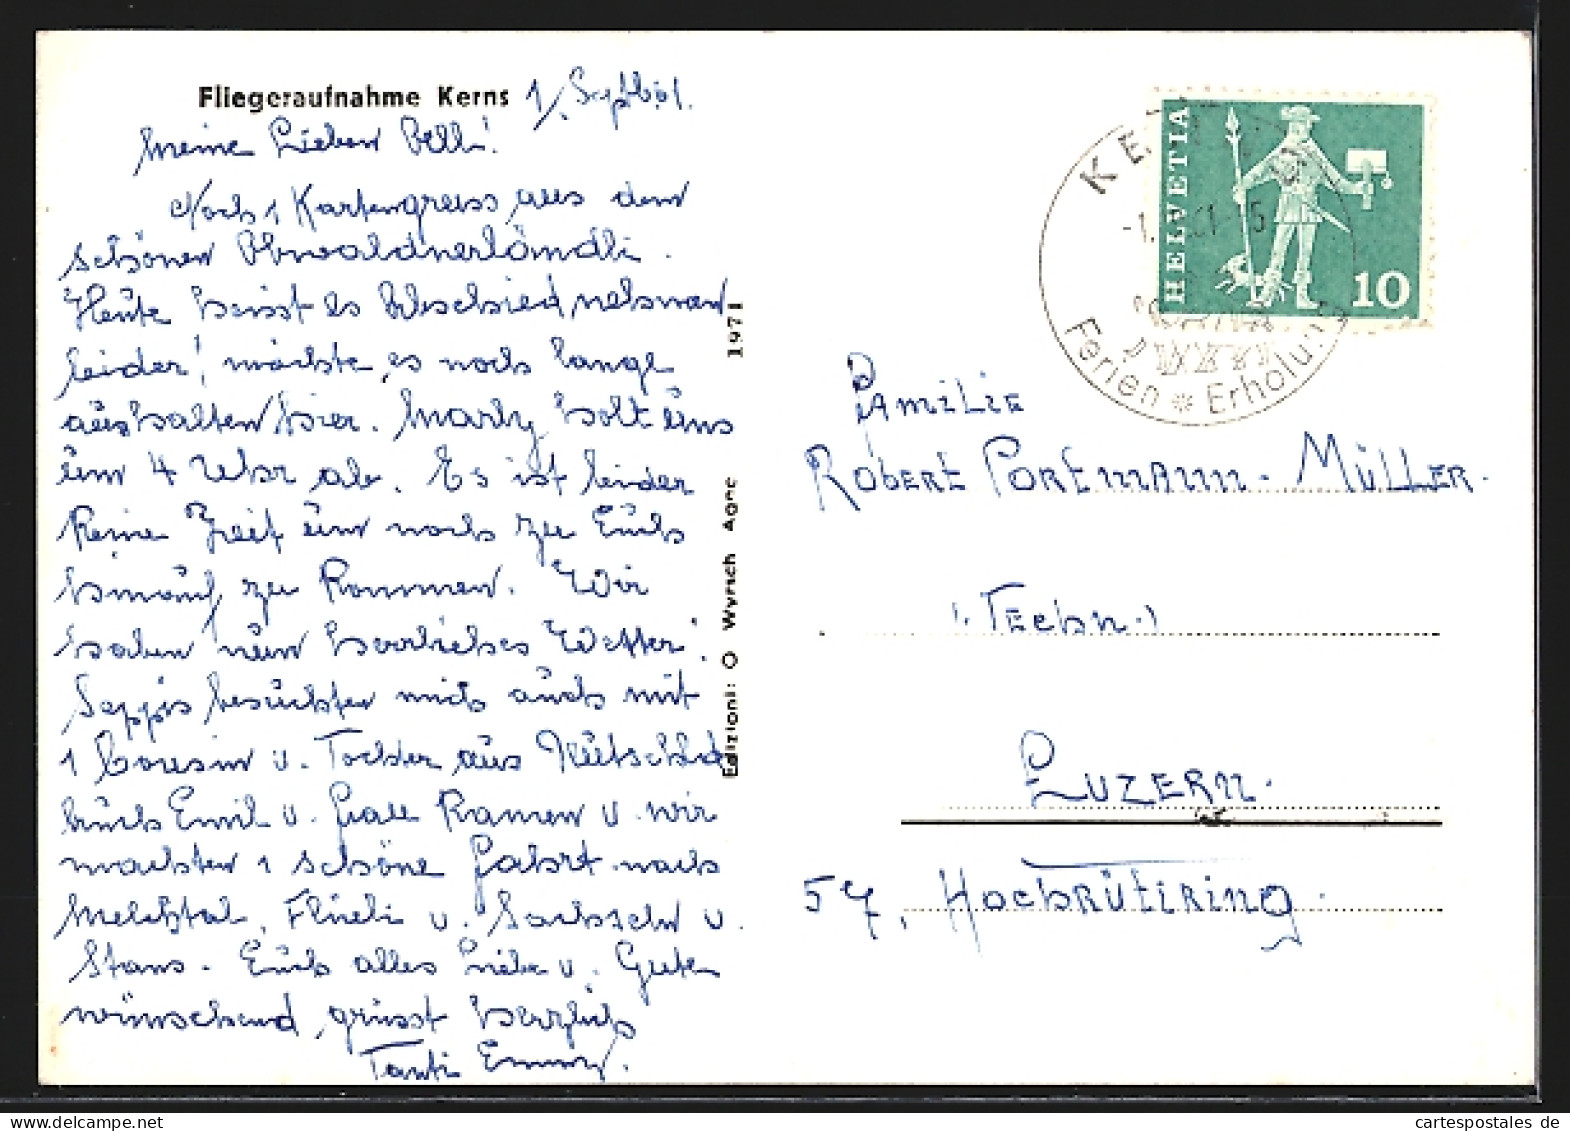 Fliegeraufnahme Kerns 1/. Sept. 61.
Meine Lieben All!
Noch 1 Kartengruss aus dem
schönen Obwaldnerländli.
Heute heisst es Abschied nehmen
leider! möchte es noch lange
aushalten hier. Marly holt uns
um 4 Uhr ab. Es ist leider
keine Zeit um noch zu Euch
hinauf zu kommen. Wir
haben nun herrliches Wetter!
Seppis besuchten mich auch mit
1 Cousin u. Tochter aus
Emil u. kamen u. wir
machten 1 schöne Fahrt nach
Melchtal, Flüeli u. Sachseln u.
Stans. Euch alles Liebe u. Gute
wünschend, grüsst herzlich
Tanti Emmy.
Edizioni: O Wyrsch Agno 1971
HELVETIA
10
Ferien * Erholung
Familie
Robert Portmann-Müller.
(Techn.)
Luzern.
57, Hochrütiring.
cartespostales de